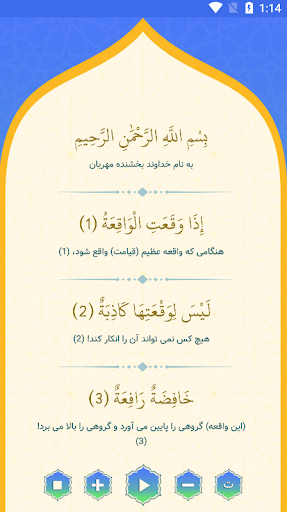 1:14
بِسْمِ اللَّهِ الرَّحْمَٰنِ الرَّحِيمِ
به نام خداوند بخشنده مهربان
إِذَا وَقَعَتِ الْوَاقِعَةُ (1)
هنگامی که واقعه عظیم (قیامت) واقع شود، (1)
لَيْسَ لِوَقْعَتِهَا كَاذِبَةٌ (2)
هیچ کس نمی تواند آن را انکار کند! (2)
خَافِضَةٌ رَافِعَةٌ (3)
(این واقعه) گروهی را پایین می آورد و گروهی را بالا می برد!
(3)
ت